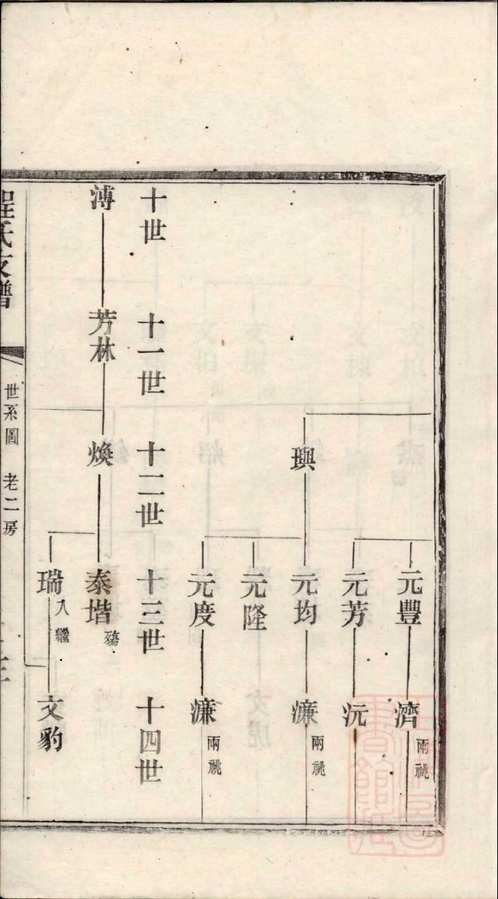 元豐
濟 兩祧
元芳
沅
璵
元均
濂 兩祧
元隆
元度
濂 兩祧
十世
十一世
十二世
十三世
十四世
溥
芳林
煥
泰堦 殤
瑞 入繼
文豹
程氏支譜
世系圖 老二房